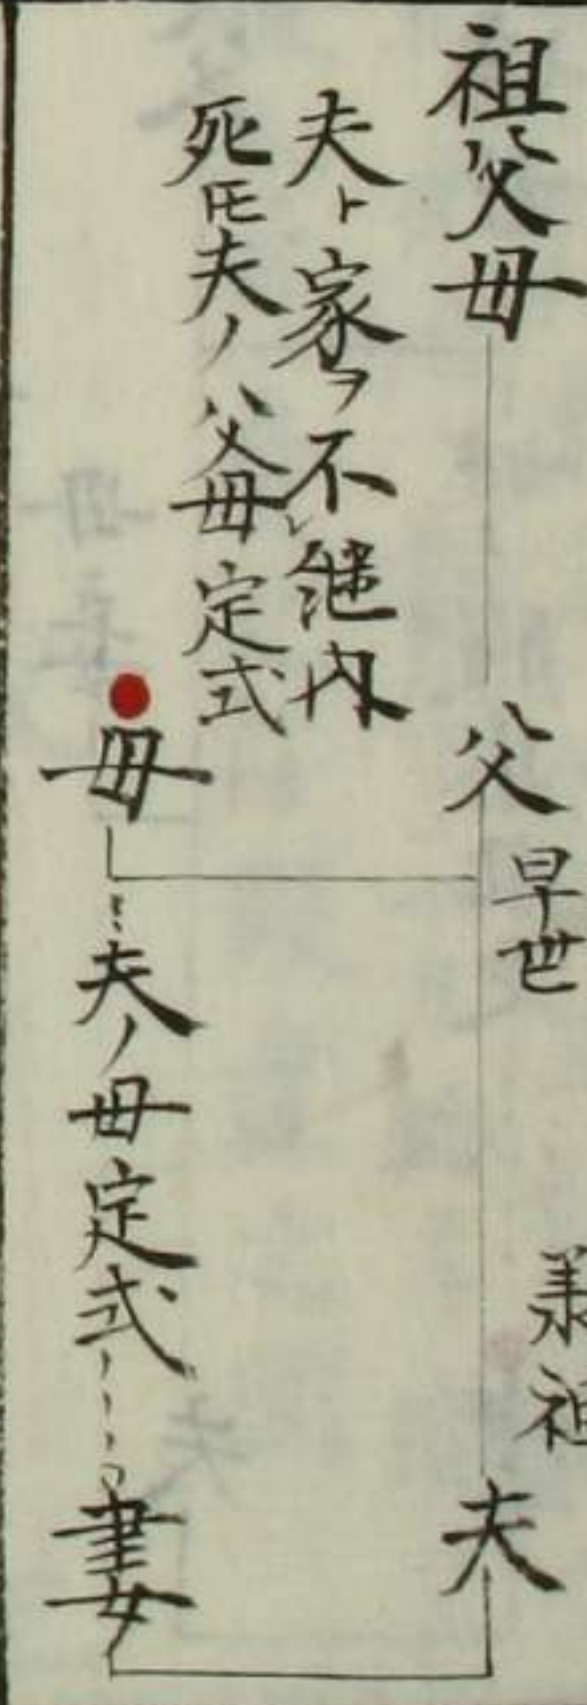 祖父母
父
早世
承祖
夫
夫ト家ヲ不継内
死𪜈夫ノ父母定式
母
夫ノ母定式
妻